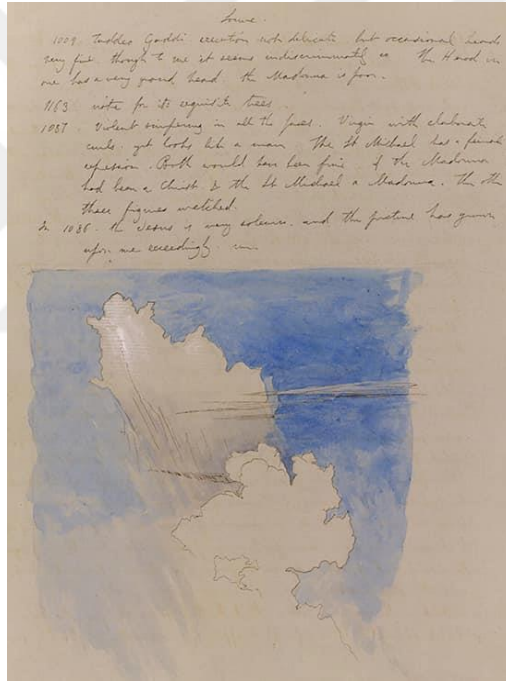 Louvre.
1009 Taddeo Gaddi. execution not delicate but occasional heads
very fine though to me it seems indiscriminately so The Herod in
one has a very grand head. the Madonna is poor.
1163 note for its exquisite trees
1087 Violent simpering in all the faces. Virgin with elaborate
curls yet looks like a man The St Michael has a female
expression. Both would have been fine if the Madonna
had been a Christ & the St Michael a Madonna. the
these figures wretched.
In 1086. the Jesus is very solemn and the picture has grown
upon me exceedingly